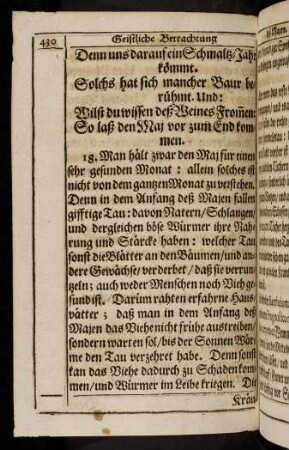 430
Geistliche Betrachtung
Denn uns darauf ein Schmaltz/Jahr
kömmt.
Solchs hat sich mancher Baur be-
rühmt. Und:
Wilst du wissen deß Weines From̃en:
So laß den Maj vor zum End kom-
men.
18. Man hält zwar den Maj für einen
sehr gesunden Monat: allein solches ist
nicht von dem gantzen Monat zu verstehen.
Denn in dem Anfang deß Majen fallen
gifftige Tau: davon Natern/Schlangen/
und dergleichen böse Würmer ihre Nah-
rung und Stärcke haben: welcher Tau
sonst die Blätter an den Bäumen/und an-
dere Gewächse/verderbet/daß sie verrun-
tzeln; auch weder Menschen noch Vieh ge-
sund ist. Darüm rahten erfahrne Haus-
vätter; daß man in dem Anfang deß
Majen das Viehe nicht frühe austreiben/
sondern warten sol/bis der Sonnen Wär-
me den Tau verzehret habe. Denn sonst
kan das Viehe dadurch zu Schaden kom-
men/und Würmer im Leibe kriegen. Die
Kräu-